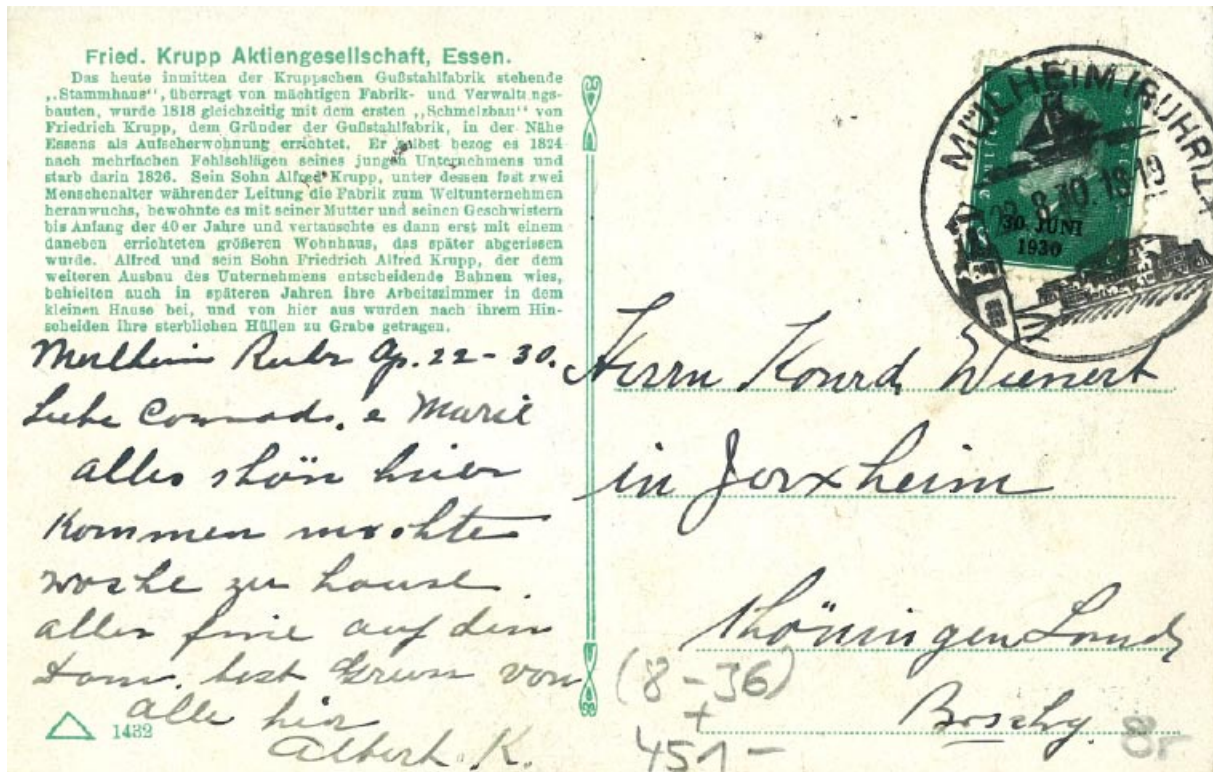 Fried. Krupp Aktiengesellschaft, Essen.
Das heute inmitten der Kruppschen Gußstahlfabrik stehende
„Stammhaus“, überragt von mächtigen Fabrik- und Verwaltungs-
bauten, wurde 1818 gleichzeitig mit dem ersten „Schmelzbau“ von
Friedrich Krupp, dem Gründer der Gußstahlfabrik, in der Nähe
Essens als Aufseherwohnung errichtet. Er selbst bezog es 1824
nach mehrfachen Fehlschlägen seines jungen Unternehmens und
starb darin 1826. Sein Sohn Alfred Krupp, unter dessen fast zwei
Menschenalter währender Leitung die Fabrik zum Weltunternehmen
heranwuchs, bewohnte es mit seiner Mutter und seinen Geschwistern
bis Anfang der 40er Jahre und vertauschte es dann erst mit einem
daneben errichteten größeren Wohnhaus, das später abgerissen
wurde. Alfred und sein Sohn Friedrich Alfred Krupp, der dem
weiteren Ausbau des Unternehmens entscheidende Bahnen wies,
behielten auch in späteren Jahren ihre Arbeitszimmer in dem
kleinen Hause bei, und von hier aus wurden nach ihrem Hin-
scheiden ihre sterblichen Hüllen zu Grabe getragen.
22-30.
Liebe Conrads. e Marie
alles shön hier
Kommen mochte
woche zu house
alles fine auf den
best von
alle hier
Albert K.
1432
MÜLHEIM (RUHR)
30. JUNI
1930
Herrn Konrd Wienert
in Jerxheim
Shöningen Land
(8-36)
+
451-